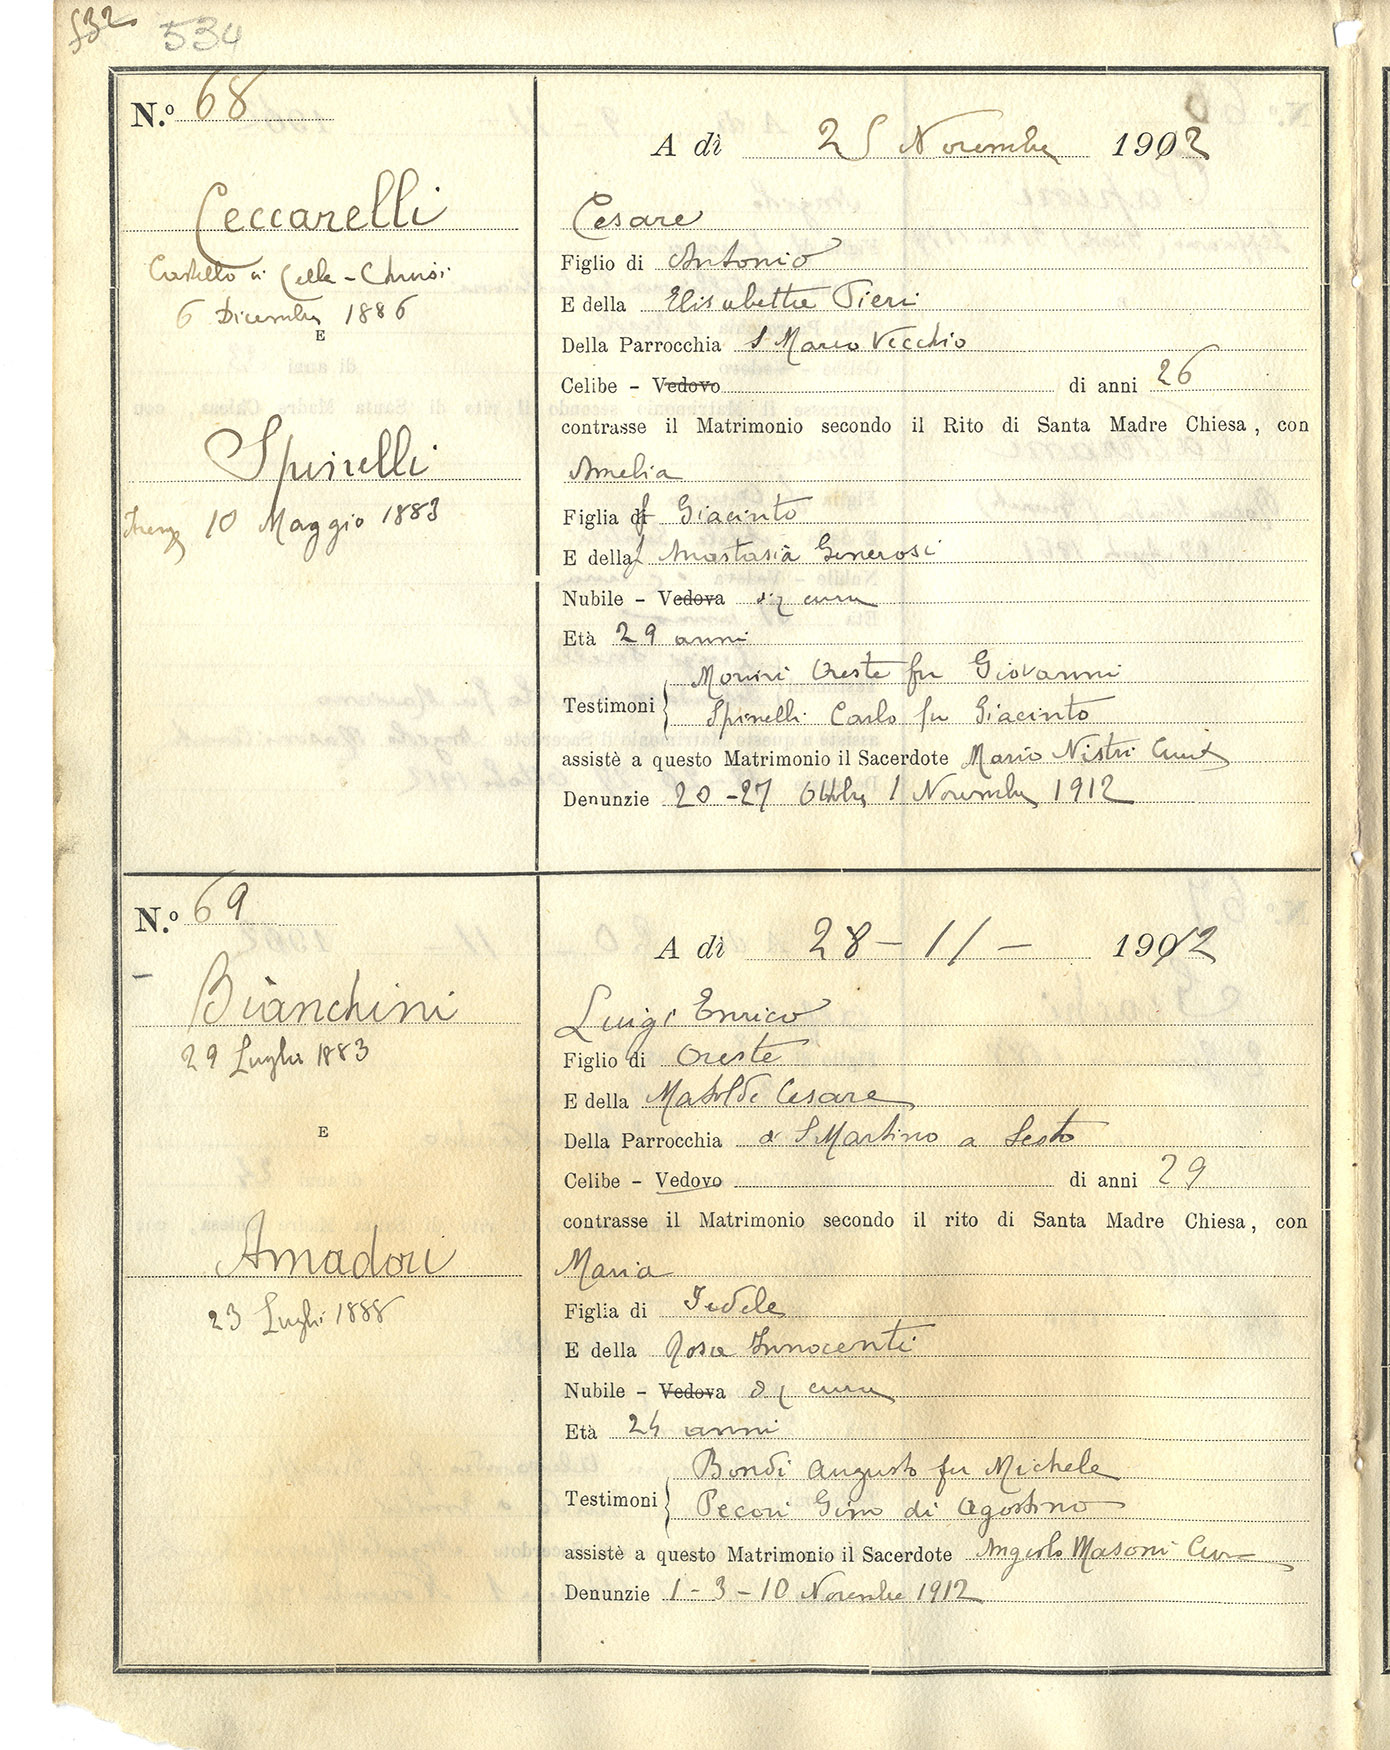 532 534
N.º 68
A dì 25 Novembre 1902
Ceccarelli
Cesare
Castello di Celle - Chiusi
6 Dicembre 1886
E
Figlio di Antonio
E della Elisabetta Pieri
Della Parrocchia S Marco Vecchio
Celibe - Vedovo di anni 26
contrasse il Matrimonio secondo il Rito di Santa Madre Chiesa, con
Spinelli
Amelia
Firenze 10 Maggio 1883
Figlia di f Giacinto
E della f Anastasia Generosi
Nubile - Vedova di q cura
Età 29 anni
Testimoni
Monini Oreste fu Giovanni
Spinelli Carlo fu Giacinto
assistè a questo Matrimonio il Sacerdote Mario Nistri
Denunzie 20 - 27 Ottobre 1 Novembre 1912
N.º 69
A dì 28 - 11 - 1912
Bianchini
Luigi Enrico
29 Luglio 1883
E
Figlio di Oreste
E della Matilde Cesare
Della Parrocchia di S Martino a Sesto
Celibe - Vedovo di anni 29
contrasse il Matrimonio secondo il rito di Santa Madre Chiesa, con
Amadori
Maria
23 Luglio 1888
Figlia di Fedele
E della Rosa Innocenti
Nubile - Vedova di q cura
Età 24 anni
Testimoni
Bondi Augusto fu Michele
Pecori Gino di Agostino
assistè a questo Matrimonio il Sacerdote Angiolo Masoni
Denunzie 1 - 3 - 10 Novembre 1912